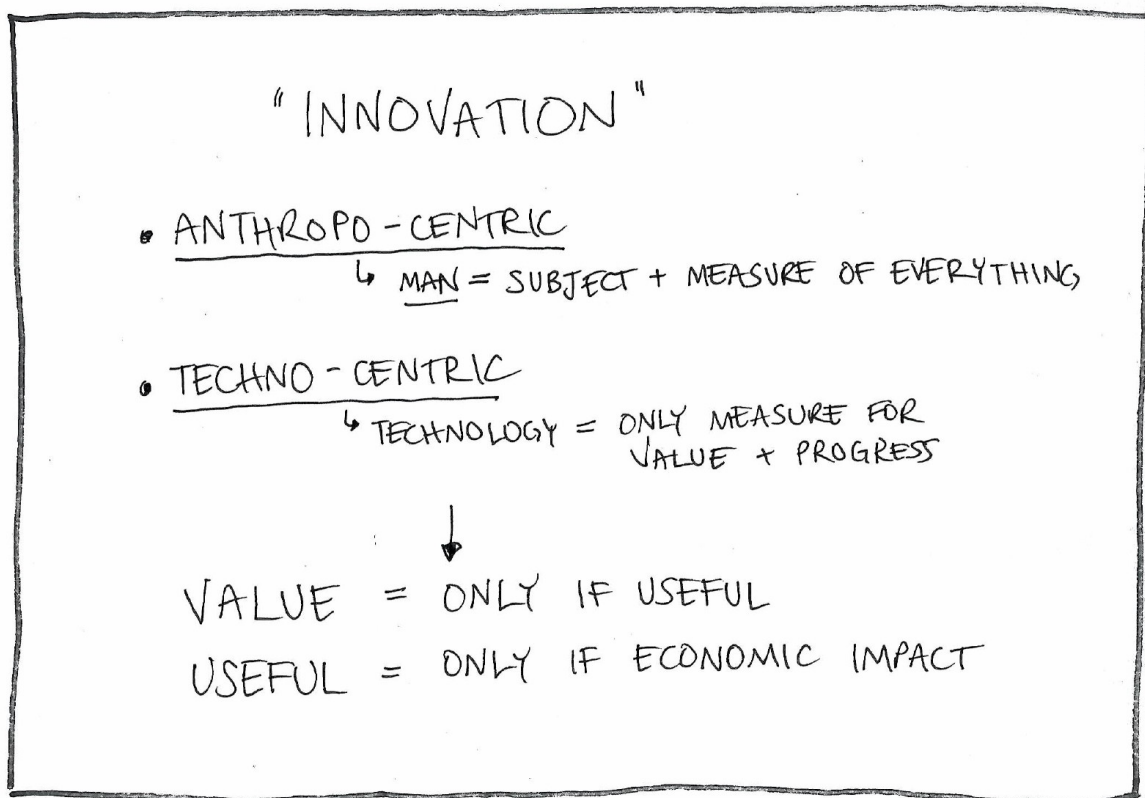 "INNOVATION"
• ANTHROPO-CENTRIC
↳ MAN = SUBJECT + MEASURE OF EVERYTHING
• TECHNO-CENTRIC
↳ TECHNOLOGY = ONLY MEASURE FOR
VALUE + PROGRESS
↓
VALUE = ONLY IF USEFUL
USEFUL = ONLY IF ECONOMIC IMPACT